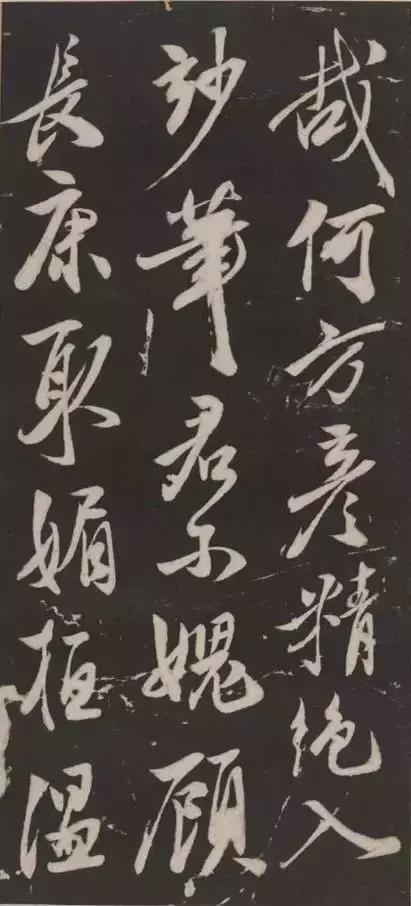 哉何方彥精絕入
玅筆君不媿顧
長康取媚桓溫